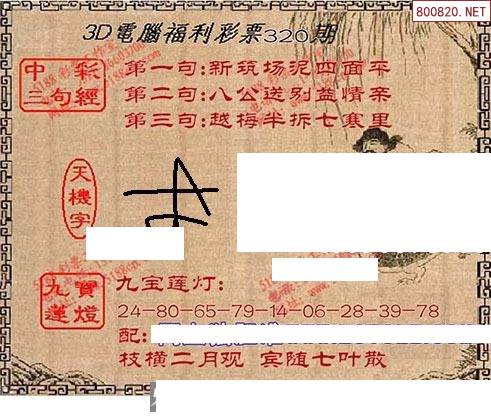 800820.NET
3D電腦福利彩票320期
中彩
三句經
第一句:新筑场泥四面平
第二句:八公送别益情亲
第三句:越梅半拆七寒里
天機字
九寶
蓮燈
九宝莲灯:
24-80-65-79-14-06-28-39-78
配:
枝横二月观 宾随七叶散